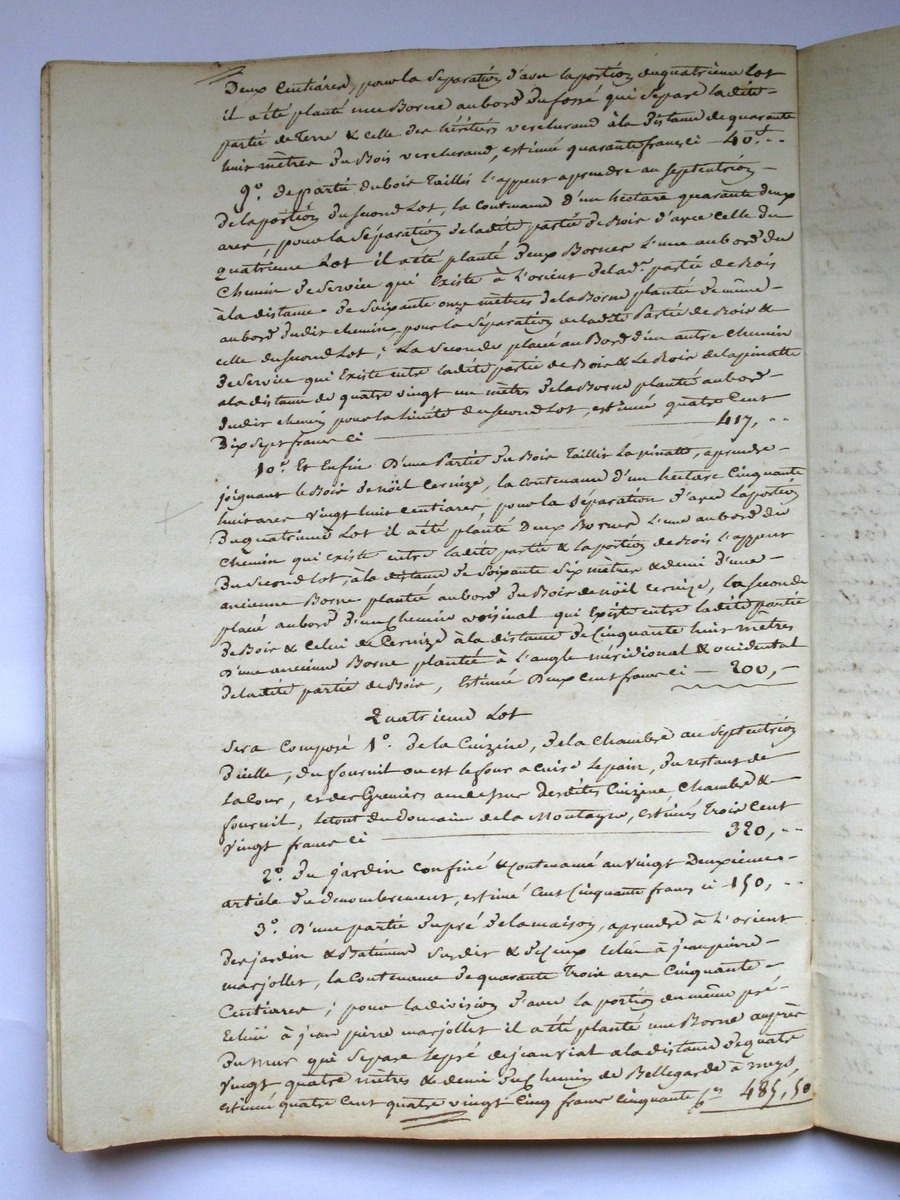 Deux Centiares, pour la séparation d'avec la portion du quatrieme Lot
il a été planté une Borne au bord du fossé qui separe la dite
partie de Terre & celle des héritiers vercherand à la distance de quarante
huit mètres du Bois vercherand, estimé quarante francs ci — 40 f. --
9.º de partie du bois Taillis L'appent a prendre au septentrion
de la portion du second Lot, la Contenance d'un hectare quarante deux
ares, pour la Séparation de la dite partie de Bois d'avec Celle du
quatrieme Lot il a été planté deux Bornes L'une au bord du
Chemin de Service qui Existe à l'orient de la de. partie de Bois
à la distance de soixante onze mètres de la Borne plantée de même
au bord dudit chemin, pour la Séparation de la dite Partie de Bois &
celle du second Lot ; La Seconde placé au Bord d'un autre Chemin
de Service qui Existe entre la dite partie de Bois & Le Bois de la pinatte
a la distance de quatre vingt un mètres de la Borne planté au bord
dudit chemin pour la limite du second Lot, estimée quatre Cent
Dix Sept francs ci — 417, --
10.º Et Enfin D'une Partie du Bois Taillis La pinatte, a prendre
joignant le Bois de Nöil Cernize, la Contenance d'un hectare Cinquante
huit ares vingt huit Centiares, pour la Séparation d'avec la portion
du quatrieme Lot il a été planté Deux Bornes L'une au bord du
Chemin qui existe entre la dite partie & la portion de Bois l'appent
du second Lot, à la distance de soixante six mètres & demi d'une
ancienne Borne plantée au bord du Bois de nöil cernize, la seconde
placé au bord d'un Chemin voisinal qui Existe entre la dite partie
de Bois & Celui de Cernize à la distance de Cinquante huit mètres
d'une ancienne Borne plantée à l'angle méridional & occidental
de la dite partie de Bois, Estimée Deux Cent francs ci — 200, —
Quatrieme Lot
Sera Composé 1.º de la Cuizine, de la Chambre au Septentrion
d'icelle, du fournil ou est le four a cuire le pain, du restant de
la Cour, et des Greniers au dessus desdites Cuizine Chambre &
fournil, le tout du Domaine de la Montagne, estimés Trois Cent
vingt francs ci — 320, --
2.º Du jardin Confiné & Contenancé au vingt Deuxieme
article du dénombrement, estimé Cent Cinquante francs ci 150, --
3.º D'une partie du pré de la maison, a prendre à l'orient
des jardin & Batiment susdit & de Ceux échu à jean pierre
marjollet, la Contenance de quarante Trois ares Cinquante
Centiares ; pour la division d'avec la portion du même pré
Echüe à jean pierre marjollet il a été planté une Borne auprès
du mur qui Separe le pré de jean viat a la distance de quatre
vingt quatre mètres & demi du Chemin de Bellegarde à meys,
estimé quatre cent quatre vingt Cinq francs cinquante ces 485,50